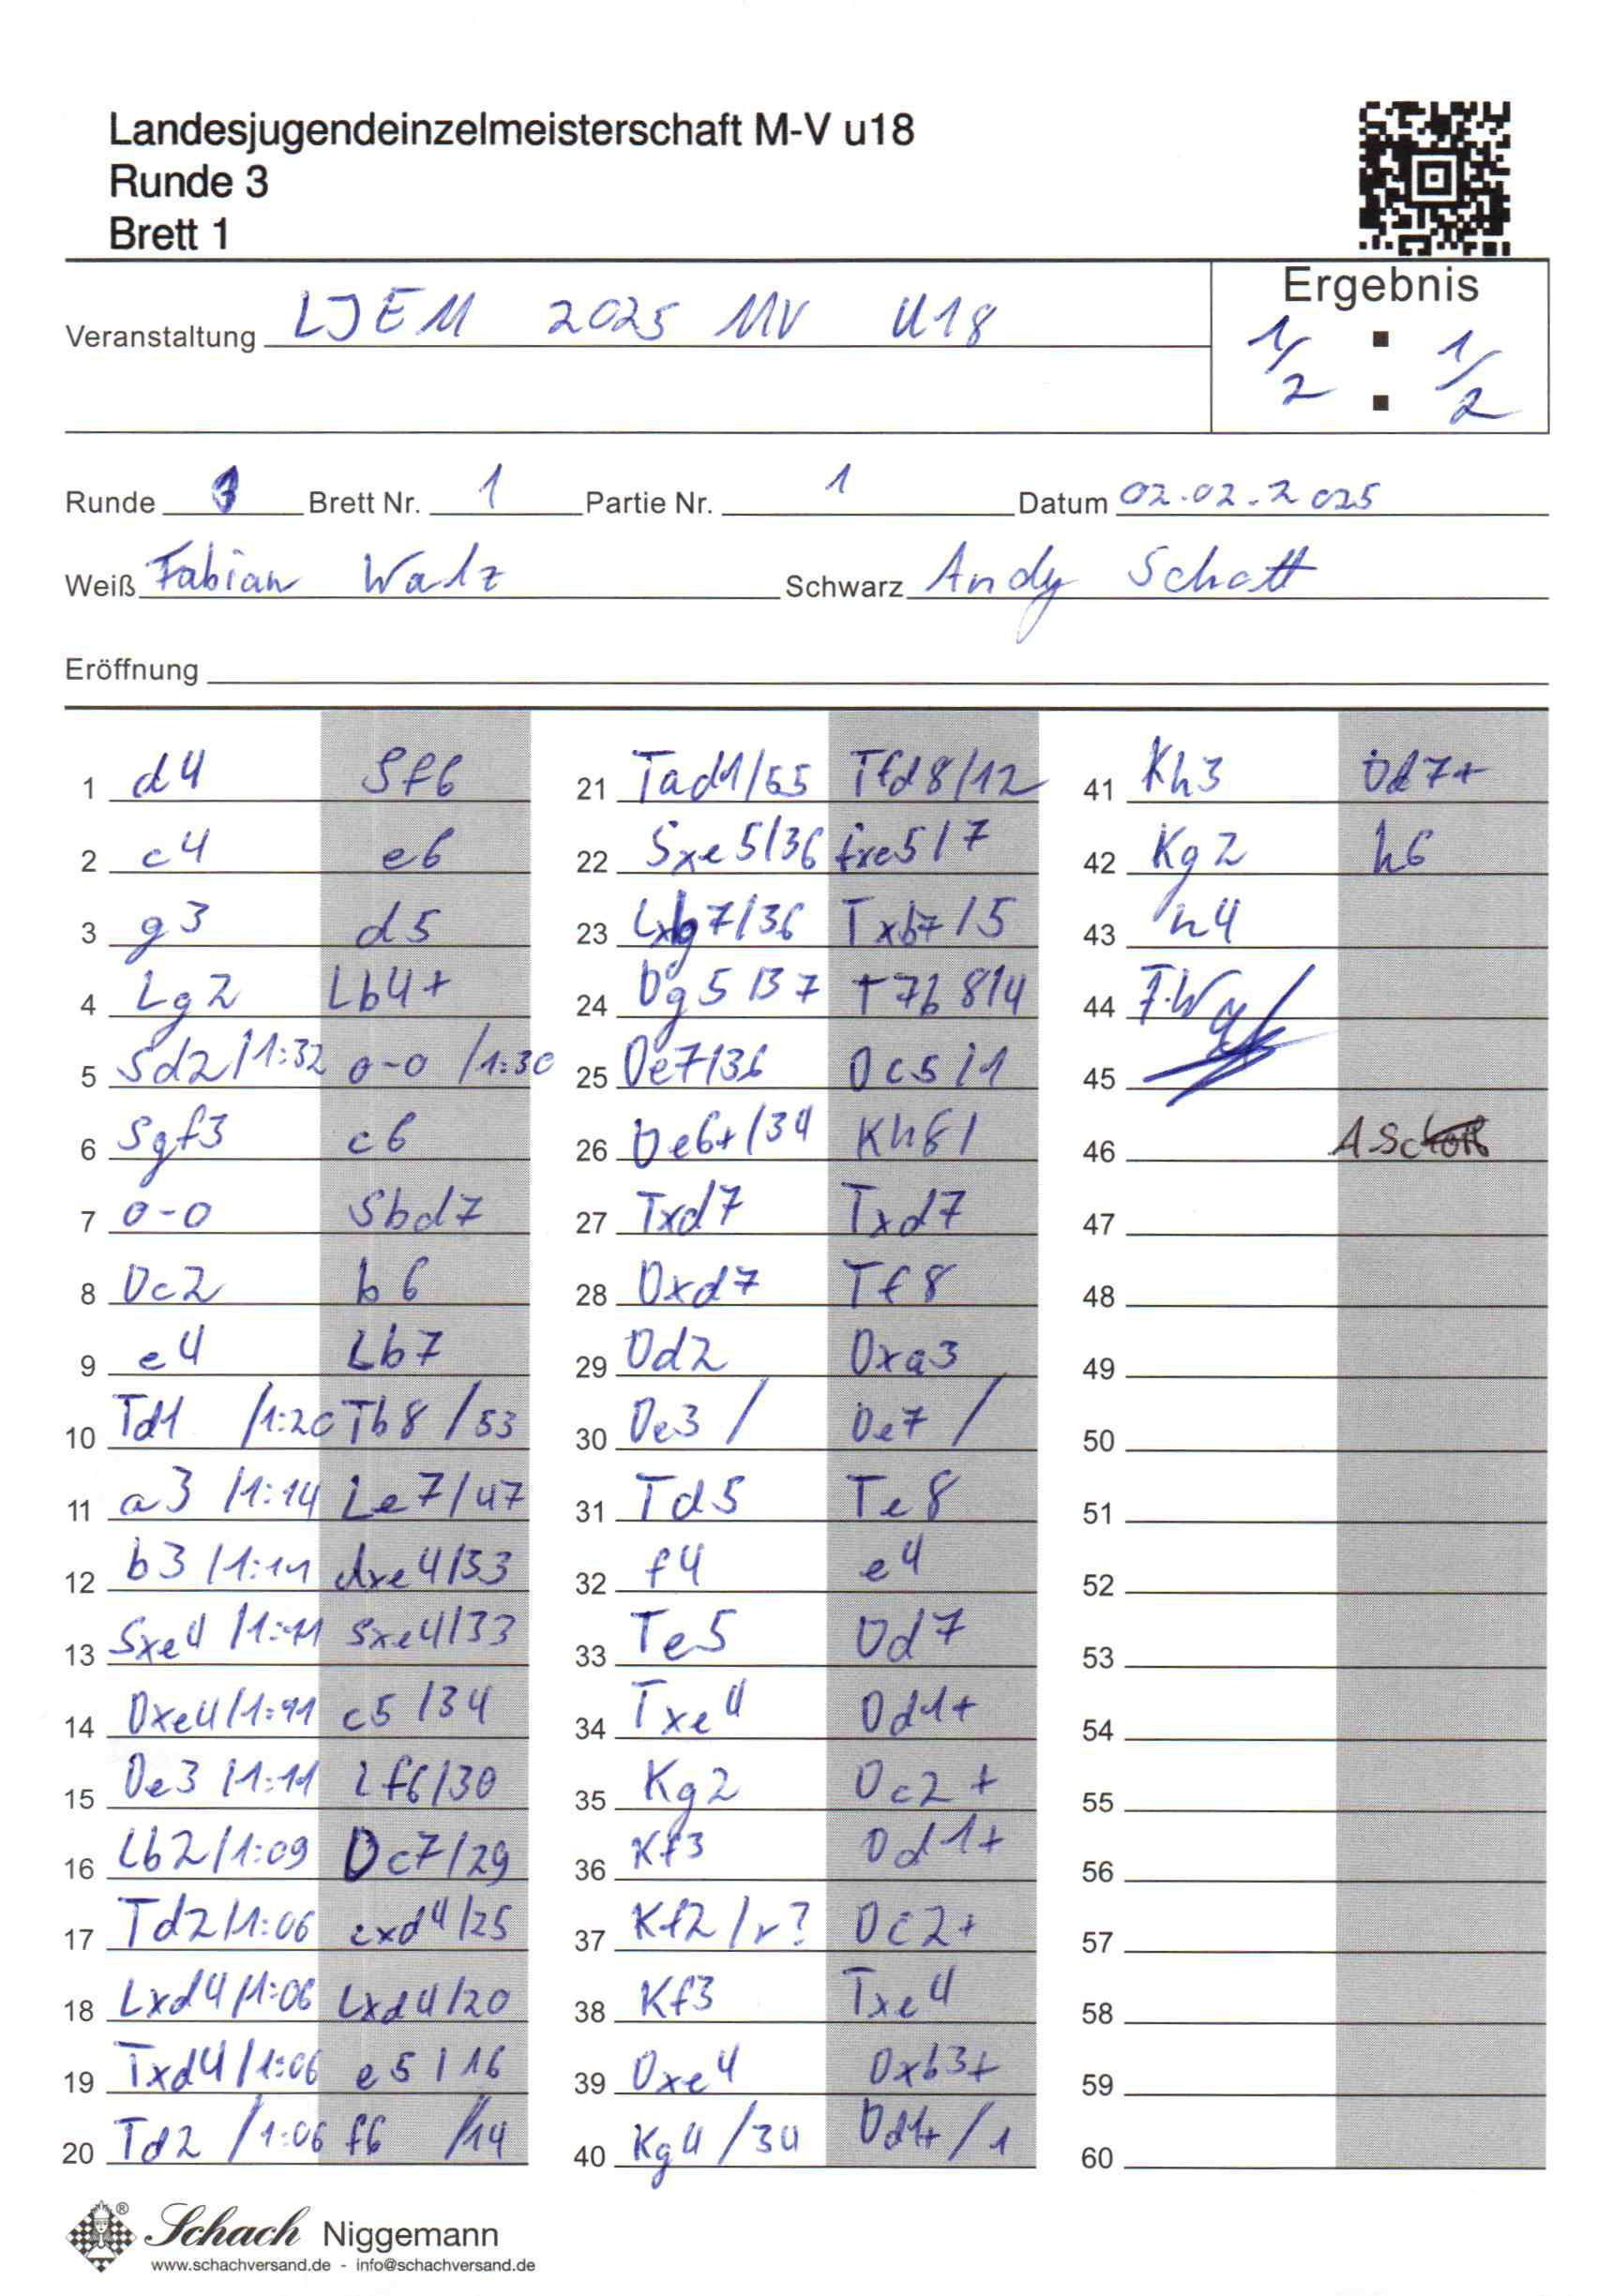 Landesjugendeinzelmeisterschaft M-V u18
Runde 3
Brett 1
Ergebnis
Veranstaltung LJEM 2025 MV U18
1/2 : 1/2
Runde 3 Brett Nr. 1 Partie Nr. 1 Datum 02.02.2025
Weiß Fabian Walz Schwarz Andy Schott
Eröffnung
1 d4 Sf6
2 c4 e6
3 g3 d5
4 Lg2 Lb4+
5 Sd2/1:32 0-0 /1:30
6 Sgf3 c6
7 0-0 Sbd7
8 Dc2 b6
9 e4 Lb7
10 Td1 /1:20 Tb8 /53
11 a3 /1:14 Le7/47
12 b3 /1:11 dxe4/33
13 Sxe4 /1:11 Sxe4/33
14 Dxe4/1:11 c5 /34
15 De3 /1:11 Lf6/30
16 Lb2/1:09 Dc7/29
17 Td2/1:06 cxd4/25
18 Lxd4/1:06 Lxd4/20
19 Txd4/1:06 e5 / 16
20 Td2 /1:06 f6 /14
21 Tad1/55 Tfd8/12
22 Sxe5/36 fxe5/7
23 Lxb7/36 Txb7/5
24 Dg5/37 T7b8/4
25 De7/36 Dc5/1
26 De6+/34 Kh8/
27 Txd7 Txd7
28 Dxd7 Tf8
29 Dd2 Dxa3
30 De3 / De7 /
31 Td5 Te8
32 f4 e4
33 Te5 Dd7
34 Txe4 Dd1+
35 Kg2 Dc2+
36 Kf3 Dd1+
37 Kf2/r? Dc2+
38 Kf3 Txe4
39 Dxe4 Dxb3+
40 Kg4 /34 Dd1+ /1
41 Kh3 Dd7+
42 Kg2 h6
43 h4
44 F.Walz
45
46 A Schott
47
48
49
50
51
52
53
54
55
56
57
58
59
60
Schach Niggemann
www.schachversand.de - info@schachversand.de